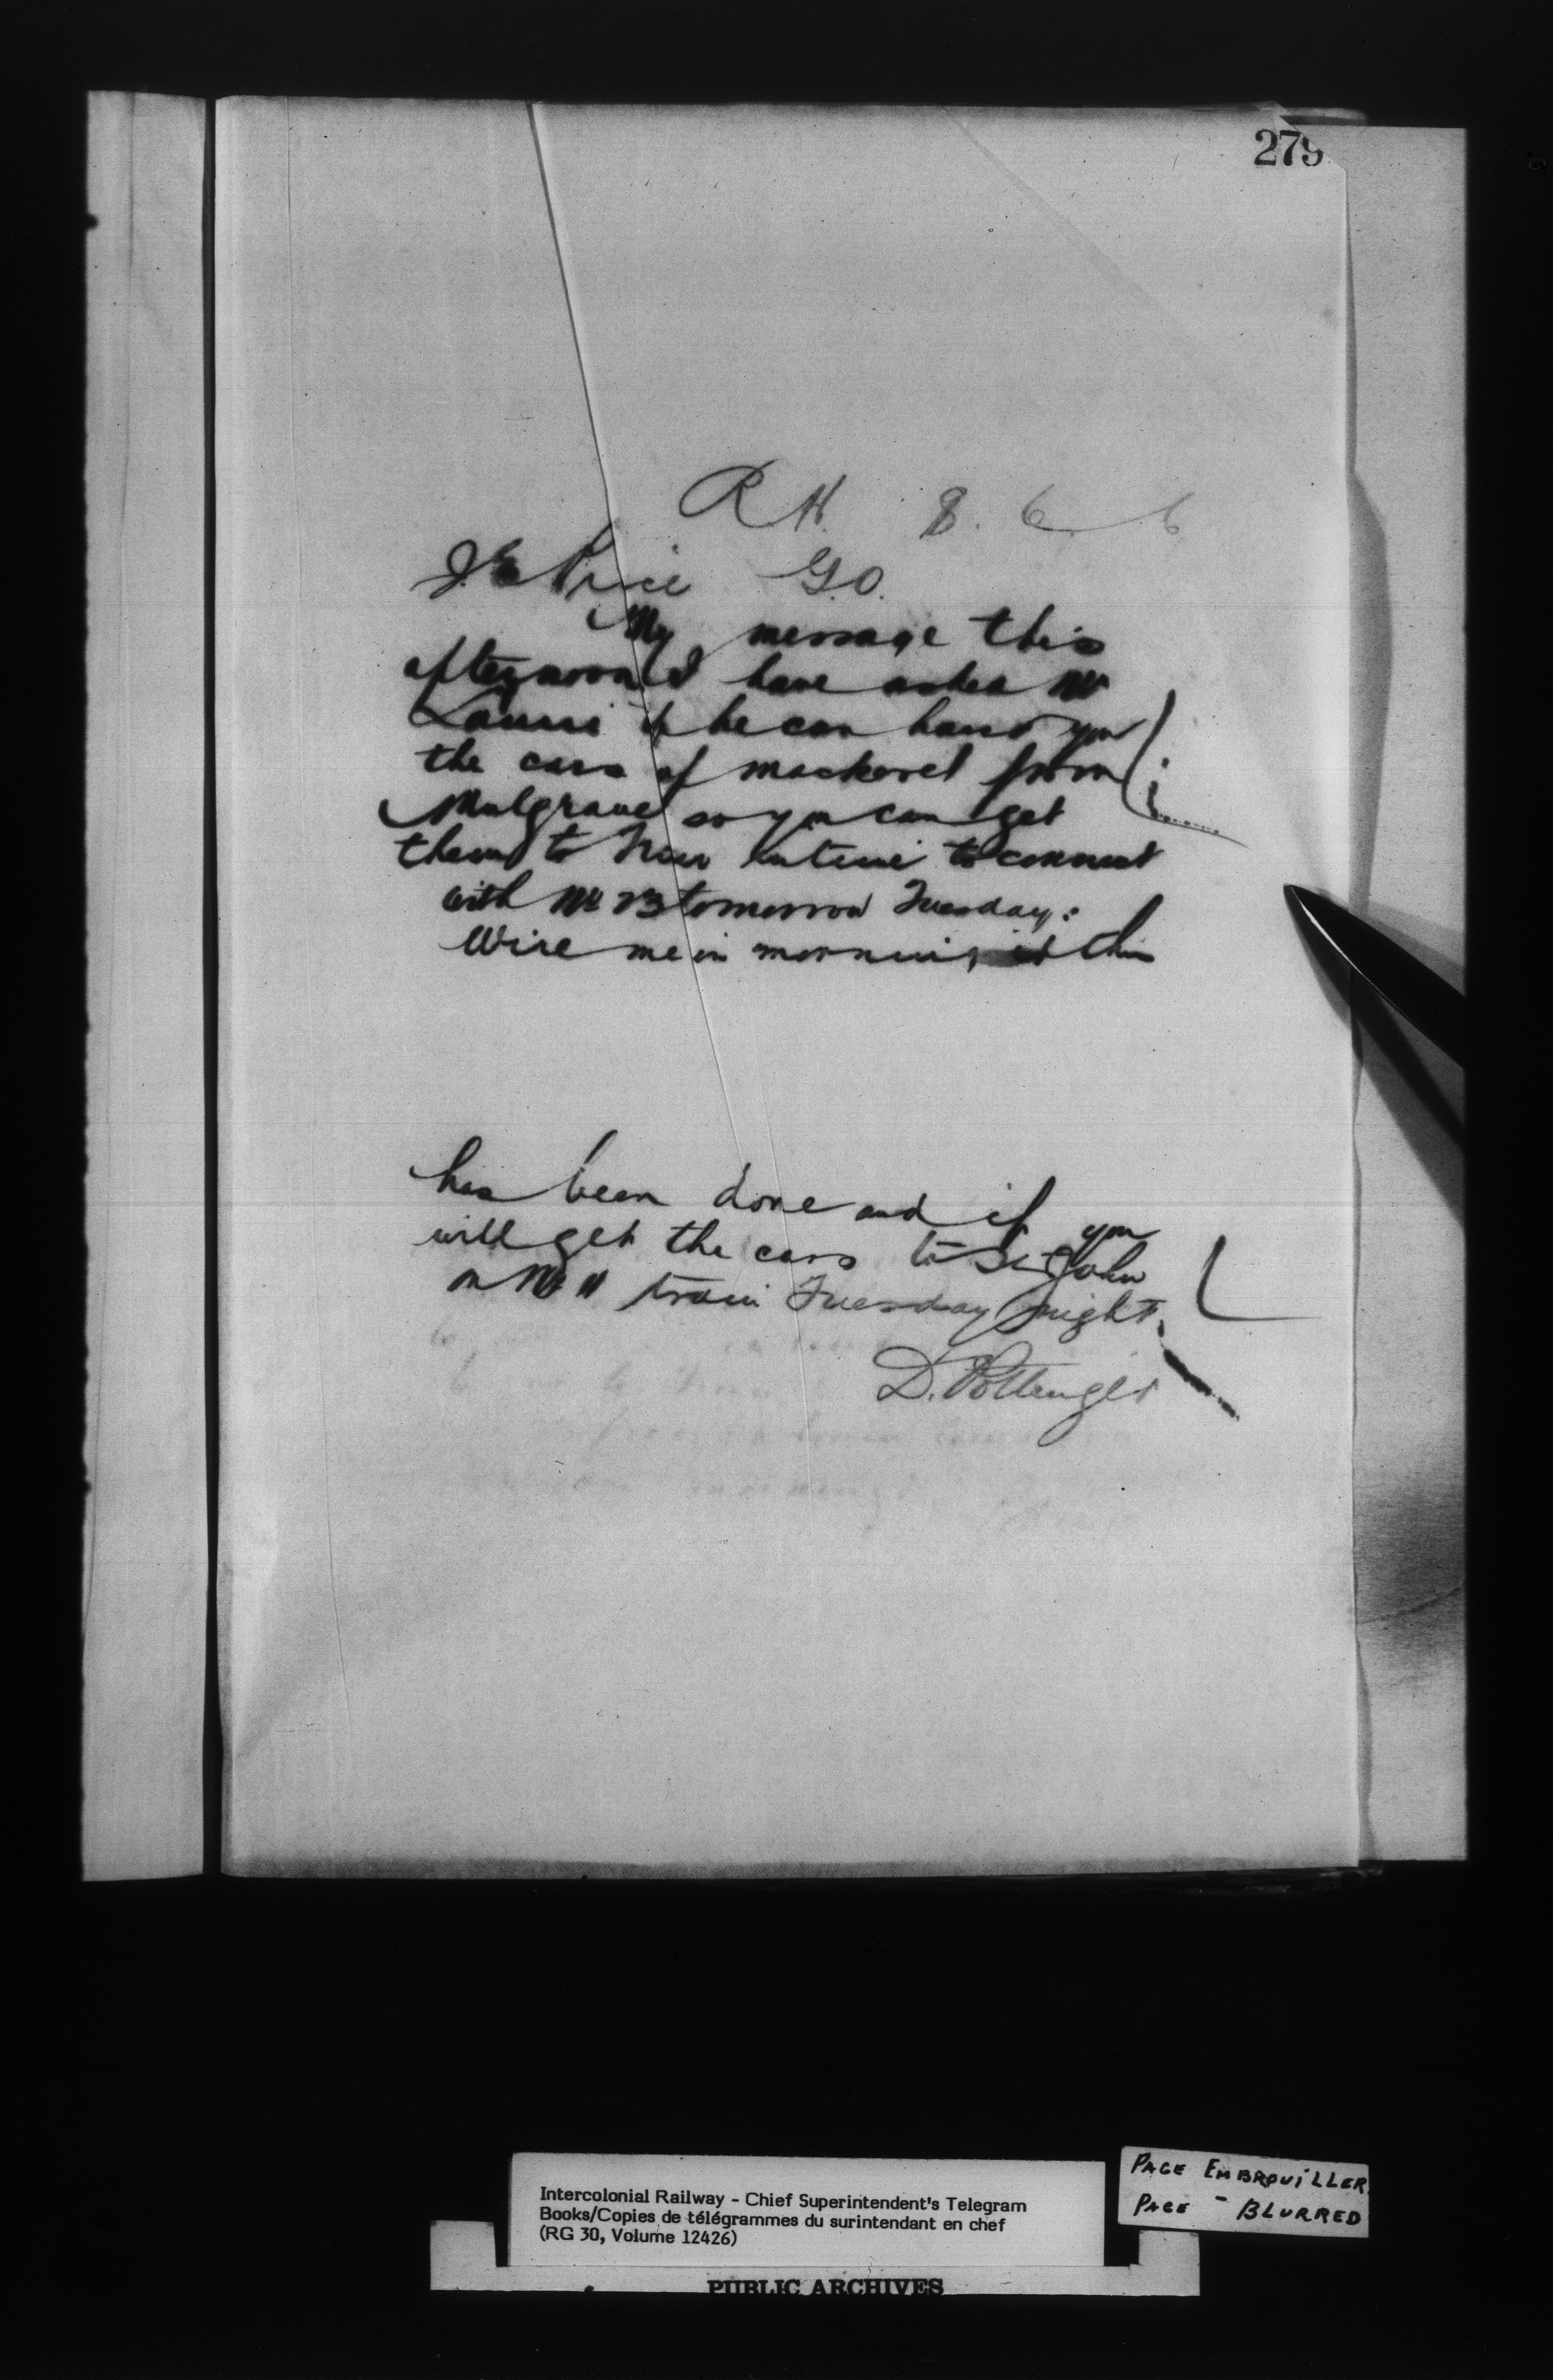 279
R H. 8. 6 6
J E Price G.O.
My message this
afternoon I have asked Mr
Laurie if he can hand you
the cars of mackerel from
Mulgrave so you can get
them to to connect
with No 23 tomorrow Tuesday:
Wire me in morning if this
has been done and if you
will get the cars to St John
on No 11 train Tuesday night.
D. Pottinger
Intercolonial Railway - Chief Superintendent's Telegram
Books/Copies de télégrammes du surintendant en chef
(RG 30, Volume 12426)
PAGE EMBROUILLER
PAGE - BLURRED
PUBLIC ARCHIVES